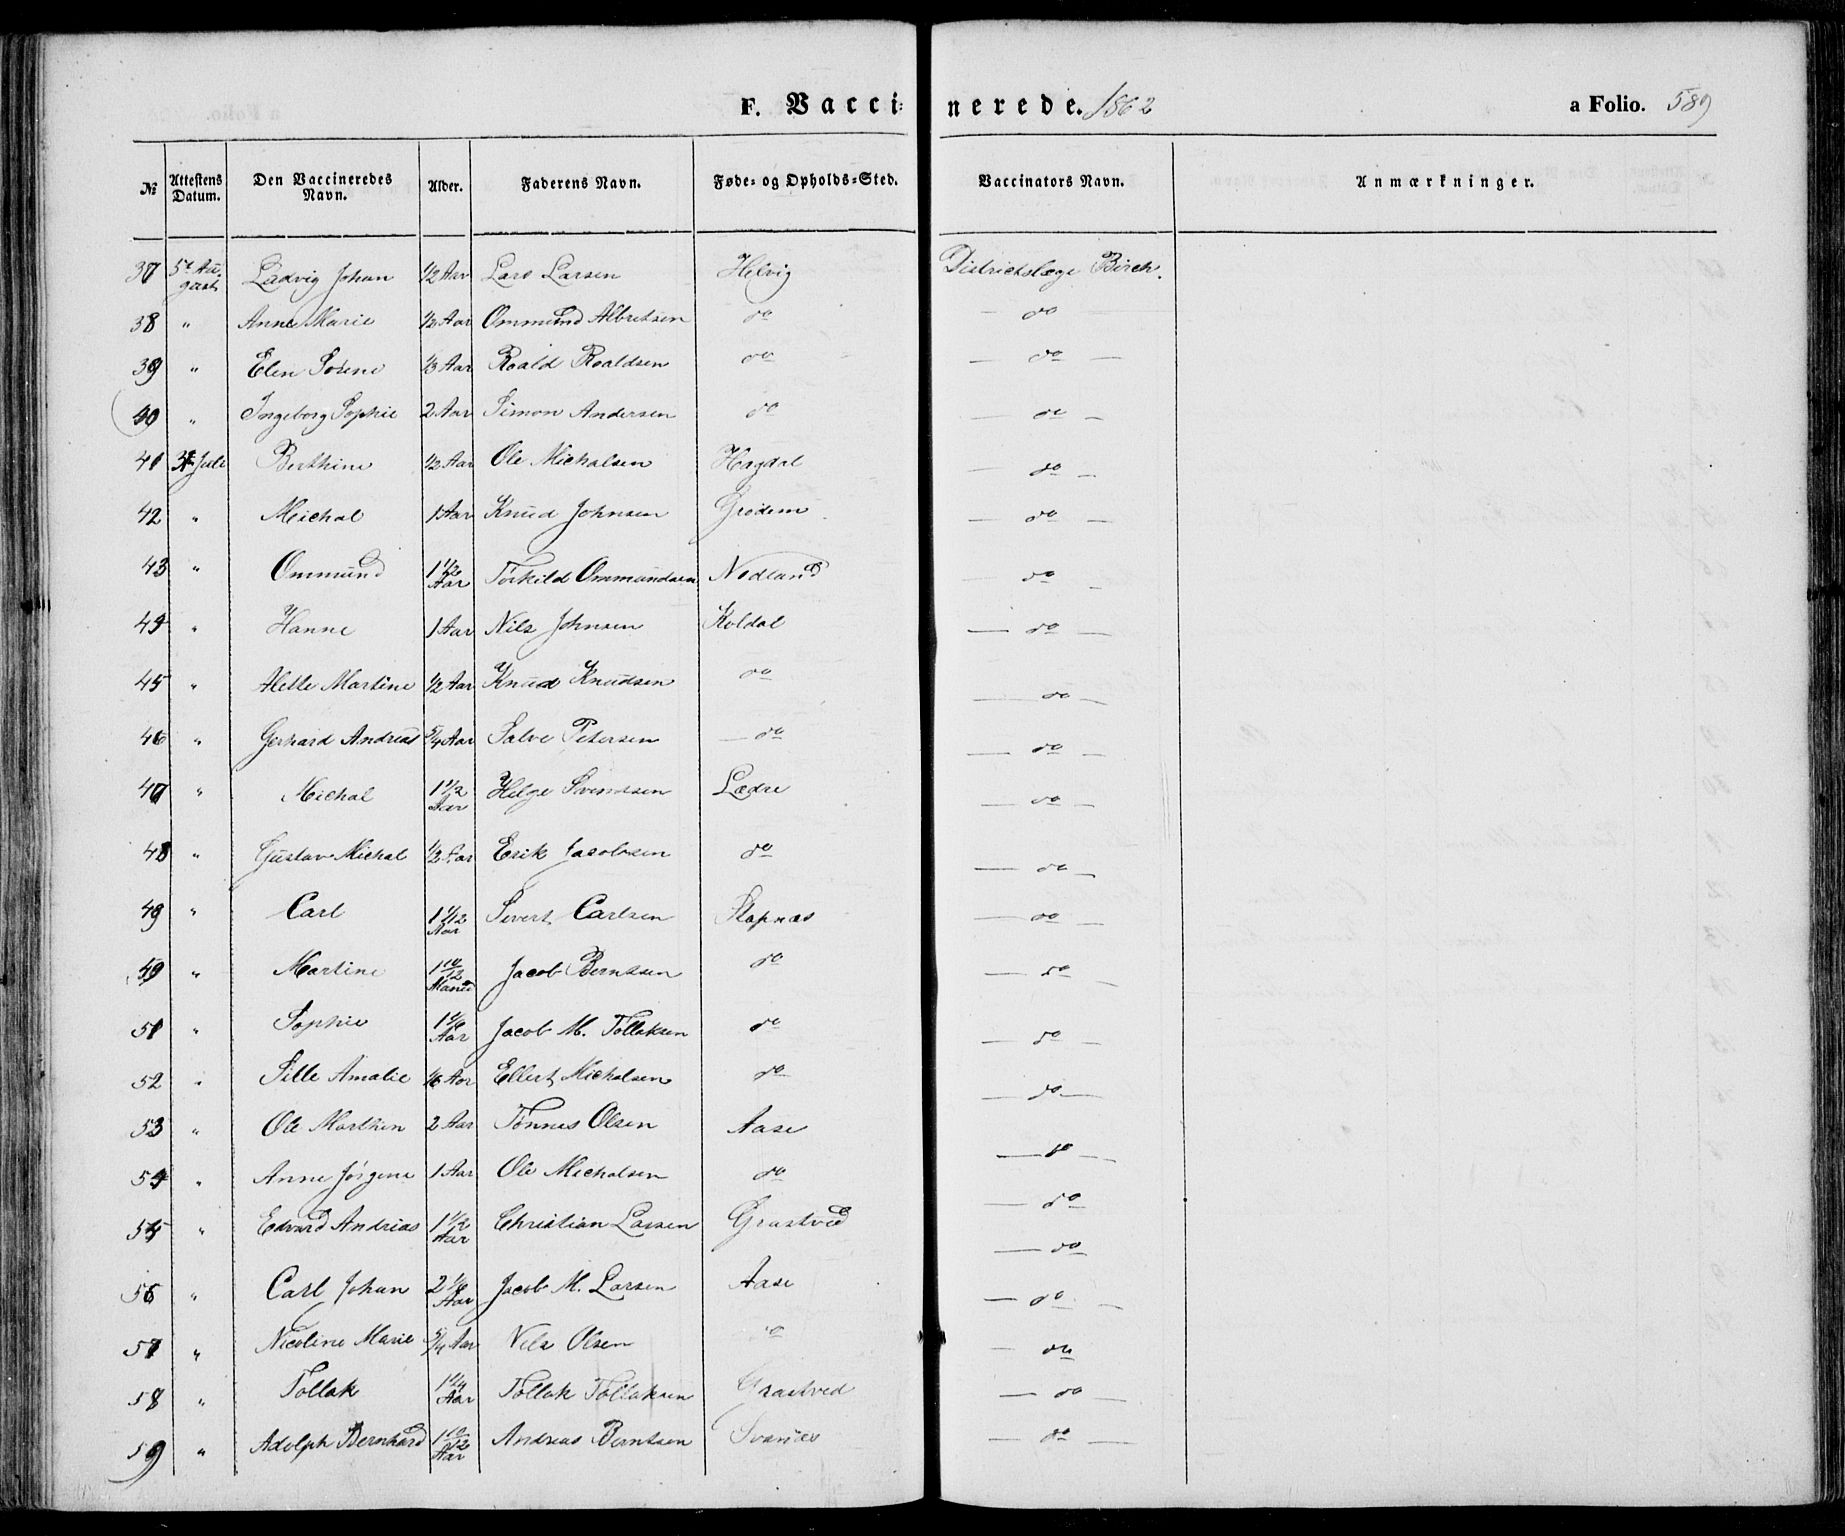 F. Vaccinerede. 1862 a Folio. 589
No Attestens Datum. Den Vaccineredes Navn. Alder. Faderens Navn. Føde- og Opholds-Sted. Vaccinators Navn. Anmærkninger.
37 5t August Ludvig Johan 1/2 Aar Lars Larsen Helvig Districtslæge Birch.
38 " Anne Marie 1/2 Aar Ommund Albretsen do — do
39 " Elen Sosene 1/3 Aar Roald Roaldsen do — do —
40 " Ingeborg Sophie 2 Aar Simon Andersen do — do —
41 Juli Berthine 1/2 Aar Ole Michalsen Hagdal — do —
42 " Michal 1 Aar Knud Johnsen Grødem — do —
43 " Ommund 1 1/2 Aar Torkild Ommundsen Nodland do —
44 " Hanne 1 Aar Nils Johnsen Koldal — do —
45 " Alette Martine 1/2 Aar Knud Knudsen do — do —
46 " Gerhard Andreas 5/4 Aar Salve Petersen — do — do —
47 " Michal 1 1/2 Aar Helge Svendsen Lædre — do —
48 " Gustav Michal 1/2 Aar Erik Jacobsen do — do —
49 " Carl 1 1/12 Aar Sivert Carlsen Stapnæs — do —
50 " Martine 1 10/12 Jacob Berntsen do — do —
51 " Sophie 1 1/6 Aar Jacob M. Tollaksen do — do —
52 " Sille Amalie 1/6 Aar Ellert Michalsen do — do —
53 " Ole Marthin 2 Aar Tønnes Olsen Aase — do —
54 " Anne Jørgene 1 Aar Ole Michalsen do — do —
55 " Edvard Andreas 1 1/2 Aar Christian Larsen Grastved — do
56 " Carl Johan 2 1/6 Aar Jacob M. Larsen Aase — do —
57 " Nicoline Marie 5/4 Aar Nils Olsen do — do
58 " Tollak 1 1/4 Aar Tollak Tollaksen Grastved — do —
59 " Adolph Bernhard 1 10/12 Aar Andreas Berntsen Svanæs — do —